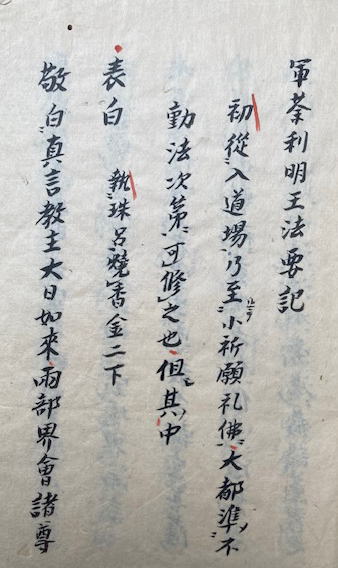 軍荼利明王法要記
初從入道場乃至小祈願礼佛大都準不
動法次第可修之也但其中
表白 執珠呂燒香金二下
敬白真言教主大日如來兩部界會諸尊